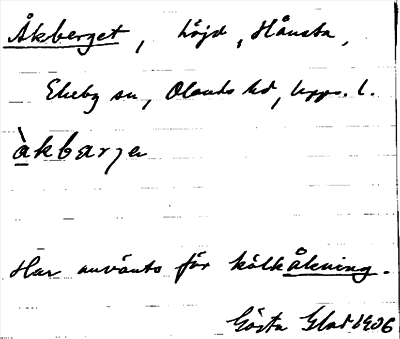 Åkberget, höjd, Hånsta,
Ekeby sn, Olands hd, Upps. l.
àkbarʒe
Har använts för kälkåkning.
Gösta Glad 1906